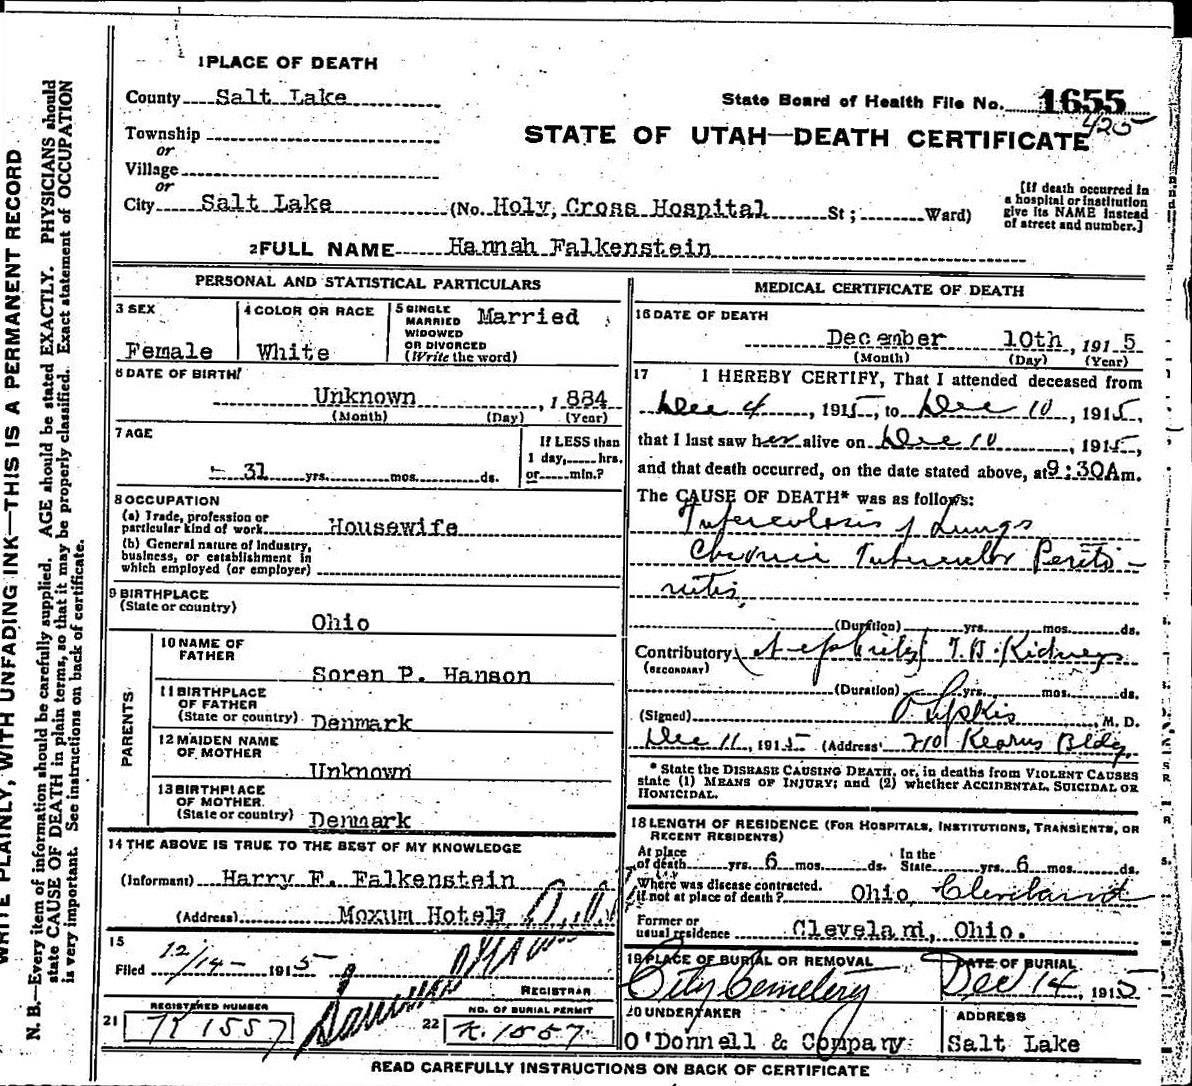 1 PLACE OF DEATH
County Salt Lake
State Board of Health File No. 1655
425
Township
STATE OF UTAH—DEATH CERTIFICATE
or
Village
or
City Salt Lake (No. Holy Cross Hospital St; Ward)
[If death occurred in
a hospital or institution
give its NAME instead
of street and number.]
2 FULL NAME Hannah Falkenstein
PERSONAL AND STATISTICAL PARTICULARS
3 SEX
Female
4 COLOR OR RACE
White
5 SINGLE
MARRIED
WIDOWED
OR DIVORCED
(Write the word)
Married
6 DATE OF BIRTH
Unknown, 1884
(Month) (Day) (Year)
7 AGE
31 yrs. mos. ds.
If LESS than
1 day, hrs.
or min.?
8 OCCUPATION
(a) Trade, profession or
particular kind of work Housewife
(b) General nature of industry,
business, or establishment in
which employed (or employer)
9 BIRTHPLACE
(State or country)
Ohio
PARENTS
10 NAME OF
FATHER
Soren P. Hanson
11 BIRTHPLACE
OF FATHER
(State or country) Denmark
12 MAIDEN NAME
OF MOTHER
Unknown
13 BIRTHPLACE
OF MOTHER.
(State or country) Denmark
14 THE ABOVE IS TRUE TO THE BEST OF MY KNOWLEDGE
(Informant) Harry F. Falkenstein
(Address) Moxum Hotel
15
Filed 12/14- 1915
REGISTRAR
REGISTERED NUMBER
21 K 1557
NO. OF BURIAL PERMIT
22 K. 1557
MEDICAL CERTIFICATE OF DEATH
16 DATE OF DEATH
December 10th, 1915
(Month) (Day) (Year)
17 I HEREBY CERTIFY, That I attended deceased from
Dec 4, 1915, to Dec 10, 1915,
that I last saw her alive on Dec 10, 1915,
and that death occurred, on the date stated above, at 9:30A m.
The CAUSE OF DEATH* was as follows:
Tuberculosis of Lungs
Chronic Tubercular Perito-
nitis,
(Duration) yrs. mos. ds.
Contributory (Nephritis) T.B. Kidneys
(SECONDARY)
(Duration) yrs. mos. ds.
(Signed) M. D.
Dec 11, 1915 (Address) 210 Kearns Bldg.
* State the DISEASE CAUSING DEATH, or, in deaths from VIOLENT CAUSES
state (1) MEANS OF INJURY; and (2) whether ACCIDENTAL, SUICIDAL OR
HOMICIDAL.
18 LENGTH OF RESIDENCE (FOR HOSPITALS, INSTITUTIONS, TRANSIENTS, OR
RECENT RESIDENTS)
At place
of death yrs. 6 mos. ds.
In the
State yrs. 6 mos. ds.
Where was disease contracted.
if not at place of death? Ohio, Cleveland
Former or
usual residence Cleveland, Ohio.
19 PLACE OF BURIAL OR REMOVAL
City Cemetery
DATE OF BURIAL
Dec 14, 1915
20 UNDERTAKER
O'Donnell & Company
ADDRESS
Salt Lake
READ CAREFULLY INSTRUCTIONS ON BACK OF CERTIFICATE
WRITE PLAINLY, WITH UNFADING INK—THIS IS A PERMANENT RECORD
N. B.—Every item of information should be carefully supplied. AGE should be stated EXACTLY. PHYSICIANS should
state CAUSE OF DEATH in plain terms, so that it may be properly classified. Exact statement of OCCUPATION
is very important. See instructions on back of certificate.